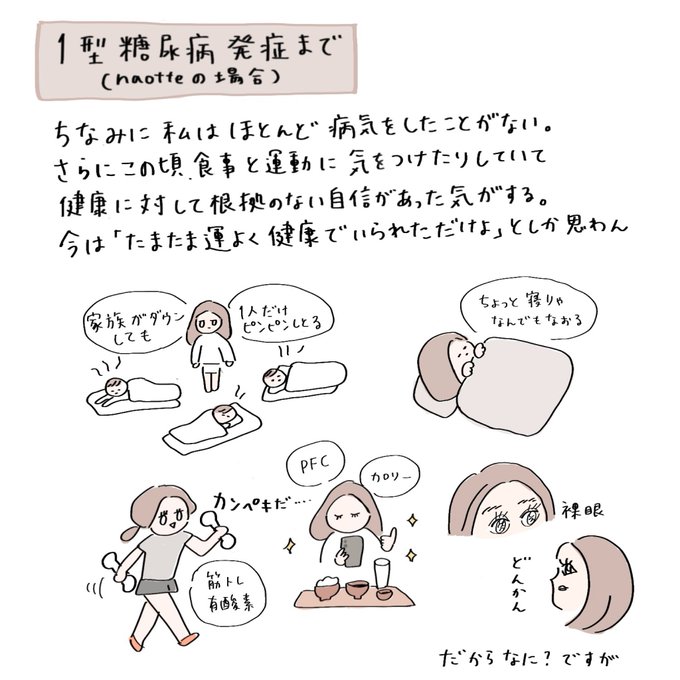 1型糖尿病発症まで
(naotteの場合)
ちなみに私はほとんど病気をしたことがない。
さらにこの頃、食事と運動に気をつけたりしていて
健康に対して根拠のない自信があった気がする。
今は「たまたま運よく健康でいられただけよ」としか思わん
家族がダウン
しても
1人だけ
ピンピンしとる
ちょっと寝りゃ
なんでもなおる
カンペキだ……
筋トレ
有酸素
PFC
カロリー
裸眼
どんかん
だからなに?ですが